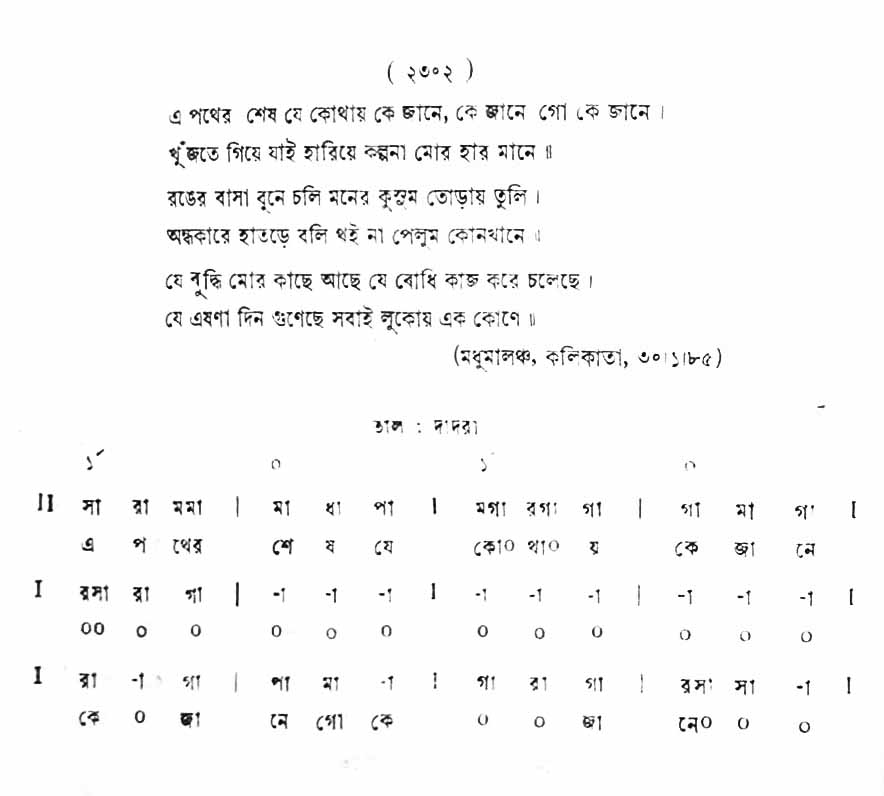 ( ২৩০২ )
এ পথের শেষ যে কোথায় কে জানে, কে জানে গো কে জানে ।
খুঁজতে গিয়ে যাই হারিয়ে কল্পনা মোর হার মানে ॥
রঙের বাসা বুনে চলি মনের কুসুম তোড়ায় তুলি ।
অন্ধকারে হাতড়ে বলি থই না পেলুম কোনখানে ॥
যে বুদ্ধি মোর কাছে আছে যে বোধি কাজ করে চলেছে ।
যে এষণা দিন গুণেছে সবাই লুকোয় এক কোণে ॥
(মধুমালঞ্চ, কলিকাতা, ৩০।১।৮৫)
তাল : দাদরা
১´ ০ ১´ ০
II সা রা মমা | মা ধা পা I মগা রগা গা | গা মা গা I
এ প থের শে ষ যে কো০ থা০ য় কে জা নে
I রসা রা গা | -া -া -া I -া -া -া | -া -া -া I
০০ ০ ০ ০ ০ ০ ০ ০ ০ ০ ০ ০
I রা -া গা | পা মা -া I গা রা গা | রসা সা -া I
কে ০ জা নে গো কে ০ ০ জা নে০ ০ ০